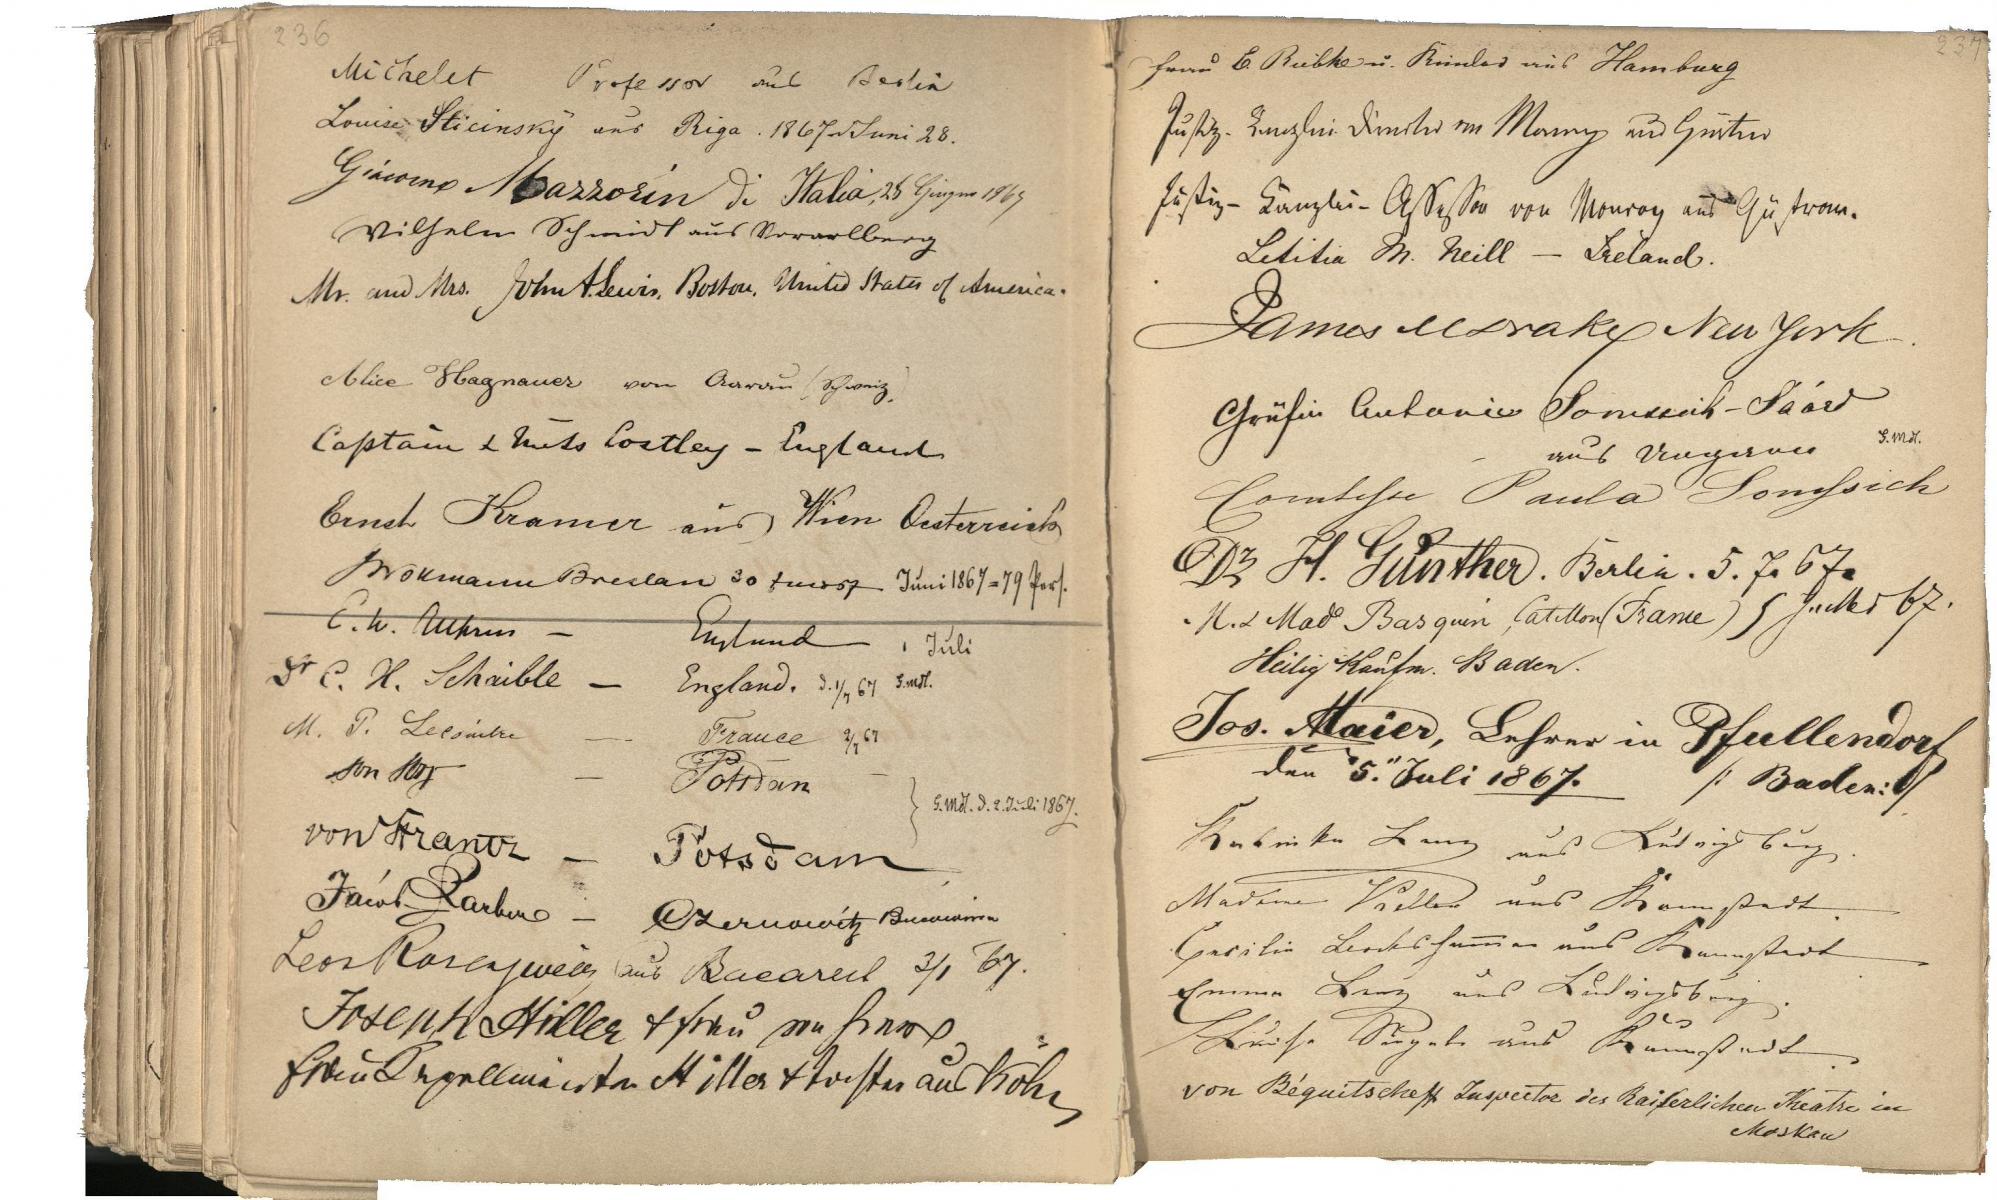 236
Michelet Professor aus Berlin
Louise Sticinsky aus Riga. 1867 Juni 28.
Giacomo Mazzorin di Italia, 28 Giugno 1867
Wilhelm Schmidt aus Vorarlberg
Mr. and Mrs. John A. Lewis, Boston, United States of America.
Alice Hagnauer von Aarau (Schweiz)
Captain & Costley – England
Ernst Kramer aus Wien Oesterreich
Brokmann Breslau 30 Juni 1867 = 79 Pers.
C. W. – England 1 Juli
Dr C. H. Schaible – England. d. 1/7 67 G.Md.
M. P. Lecointre — France 2/7 67
von – Potsdam –
G.Md. d. 2. Juli 1867.
von Frantz – Potsdam
Jacob – Czernowitz Bucowina
Leon Rosenzweig aus Bucarest 3/ 67.
Joseph Hiller & Frau von
Frau Hiller & Tochter aus
237
Frau E. Rubke u. Kinder aus Hamburg
Justiz-Kanzlei Director von Monroy aus Güstrow
Justiz-Kanzlei-Assessor von Monroy aus Güstrow.
Letitia M. Neill – Ireland.
James M Drake New York.
Gräfin Antonie Somssich-Saárd
aus Ungarn G.Md.
Comtesse Paula Somssich
Dr H. Günther. Berlin. 5. 7. 67.
M. & Mad Basquin, Catillon (France) 5 Juillet 67.
Heilig Kaufm. Baden.
Jos. Maier, Lehrer in Pfullendorf
den "5." Juli 1867. /: Baden :/
Kathinka Lenz aus Ludwigsburg.
Madame aus Kannstadt.
Caecilie aus Kannstadt
Emma Lenz aus Ludwigsburg.
Luise aus Kannstadt
von Béguitscheff Inspector des Kaiserlichen Theatre in
Moskau